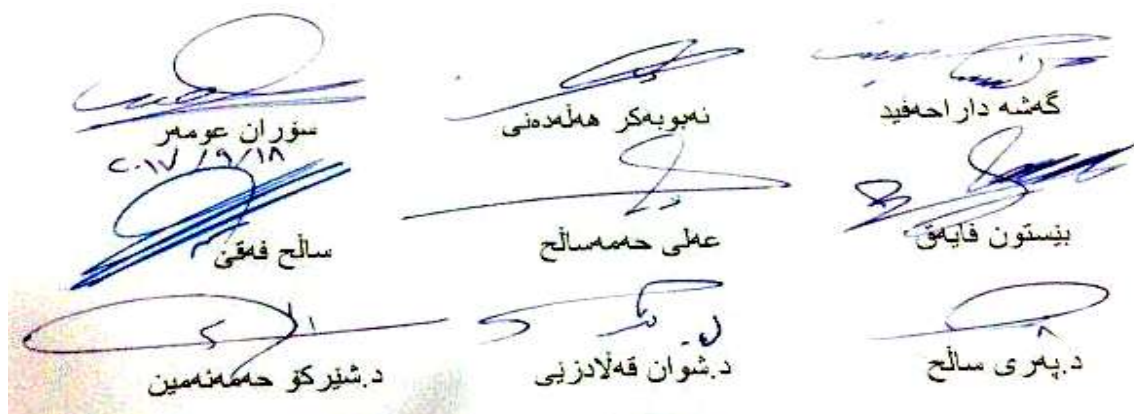 گەشە دارا حەفید ئەبوبەکر هەڵەدەنی سۆران عومەر
٢٠١٧/٩/١٨
بێستون فایەق عەلی حەمەساڵح ساڵح فەقێ
د.پەری ساڵح د.شوان قەڵادزێی د.شێرکۆ حەمەئەمین